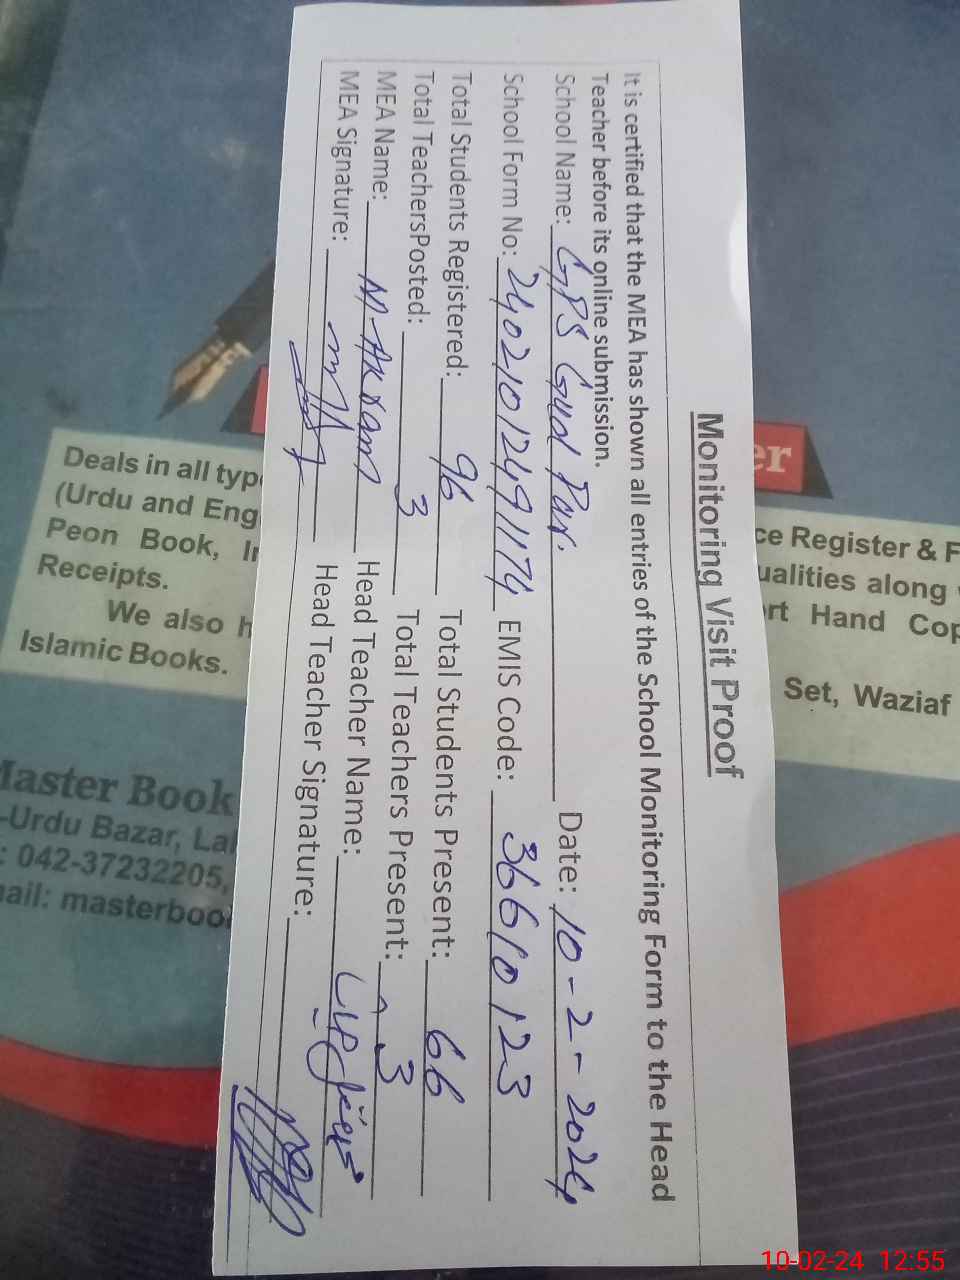 Monitoring Visit Proof
It is certified that the MEA has shown all entries of the School Monitoring Form to the Head
Teacher before its online submission.
School Name: GPS Gud Pur. Date: 10-2-2024
School Form No: 24021012491174 EMIS Code: 36610123
Total Students Registered: 96 Total Students Present: 66
Total TeachersPosted: 3 Total Teachers Present: 3
MEA Name: M-Akram Head Teacher Name:
MEA Signature: Head Teacher Signature:
er
Deals in all typ
(Urdu and Eng
Peon Book, In
Receipts.
We also h
Islamic Books.
ce Register & F
ualities along
rt Hand Cop
Set, Waziaf
Master Book
-Urdu Bazar, La
: 042-37232205,
ail: masterboo
10-02-24 12:55